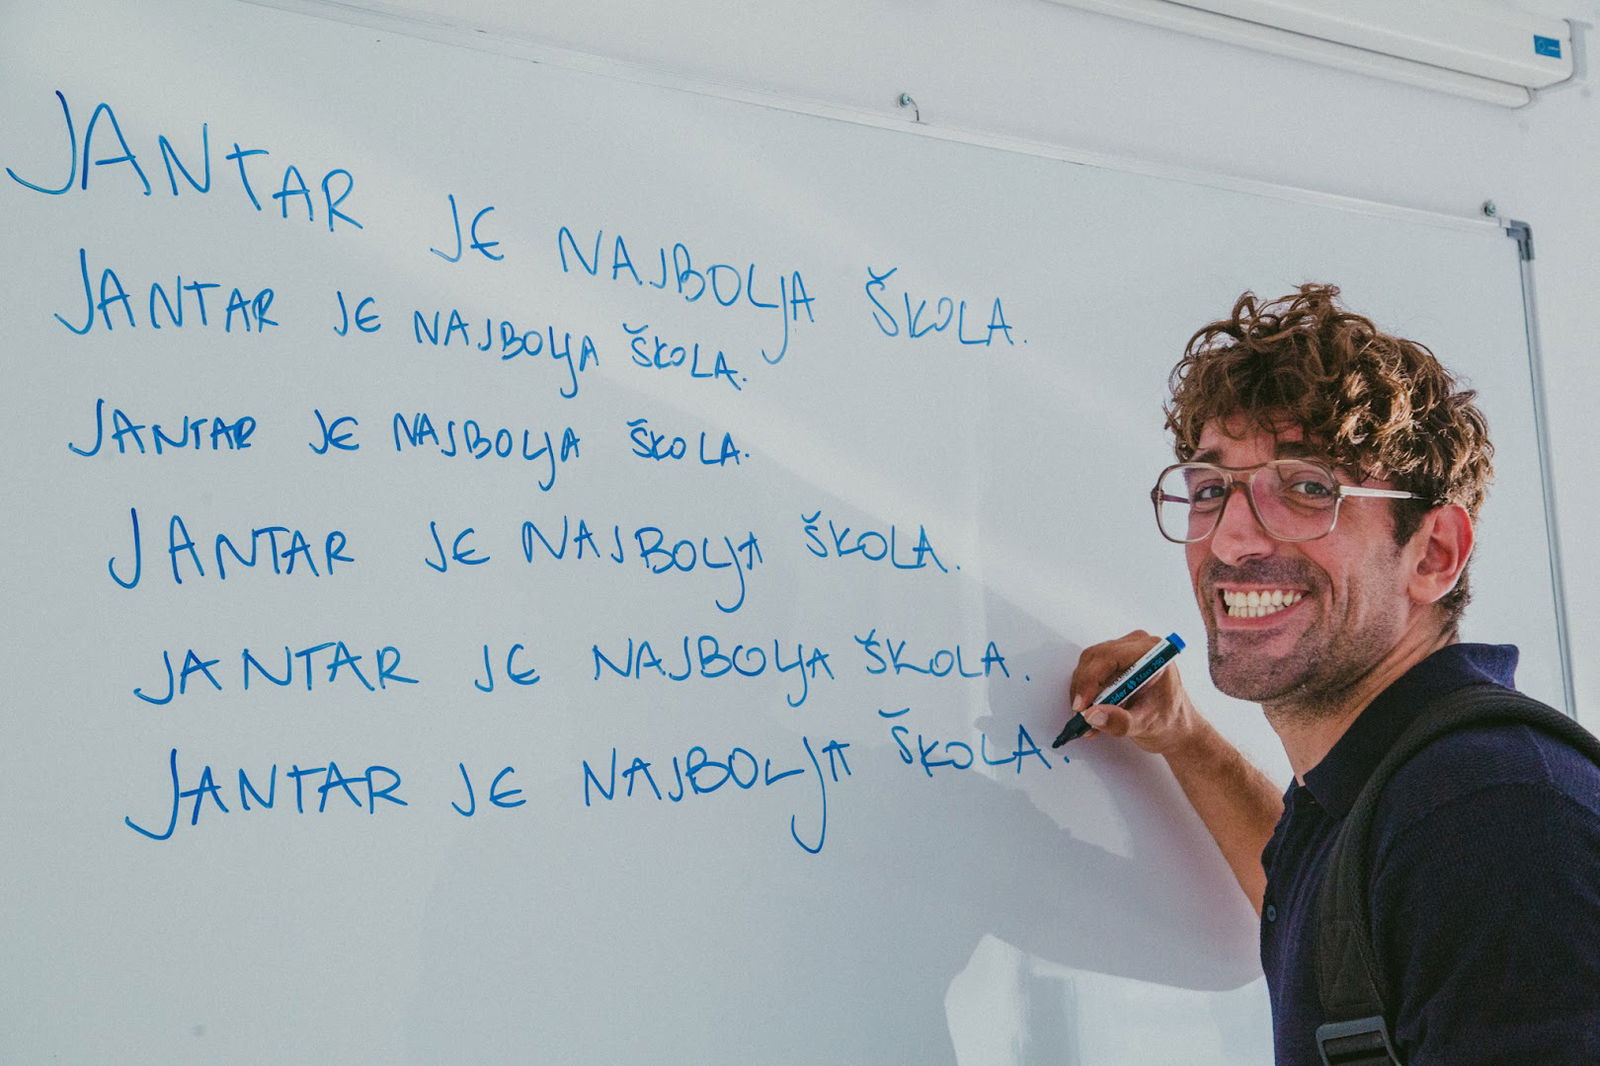 JANTAR JE NAJBOLJA ŠKOLA.
JANTAR JE NAJBOLJA ŠKOLA.
JANTAR JE NAJBOLJA ŠKOLA.
JANTAR JE NAJBOLJA ŠKOLA.
JANTAR JE NAJBOLJA ŠKOLA.
JANTAR JE NAJBOLJA ŠKOLA.
Maxx 290